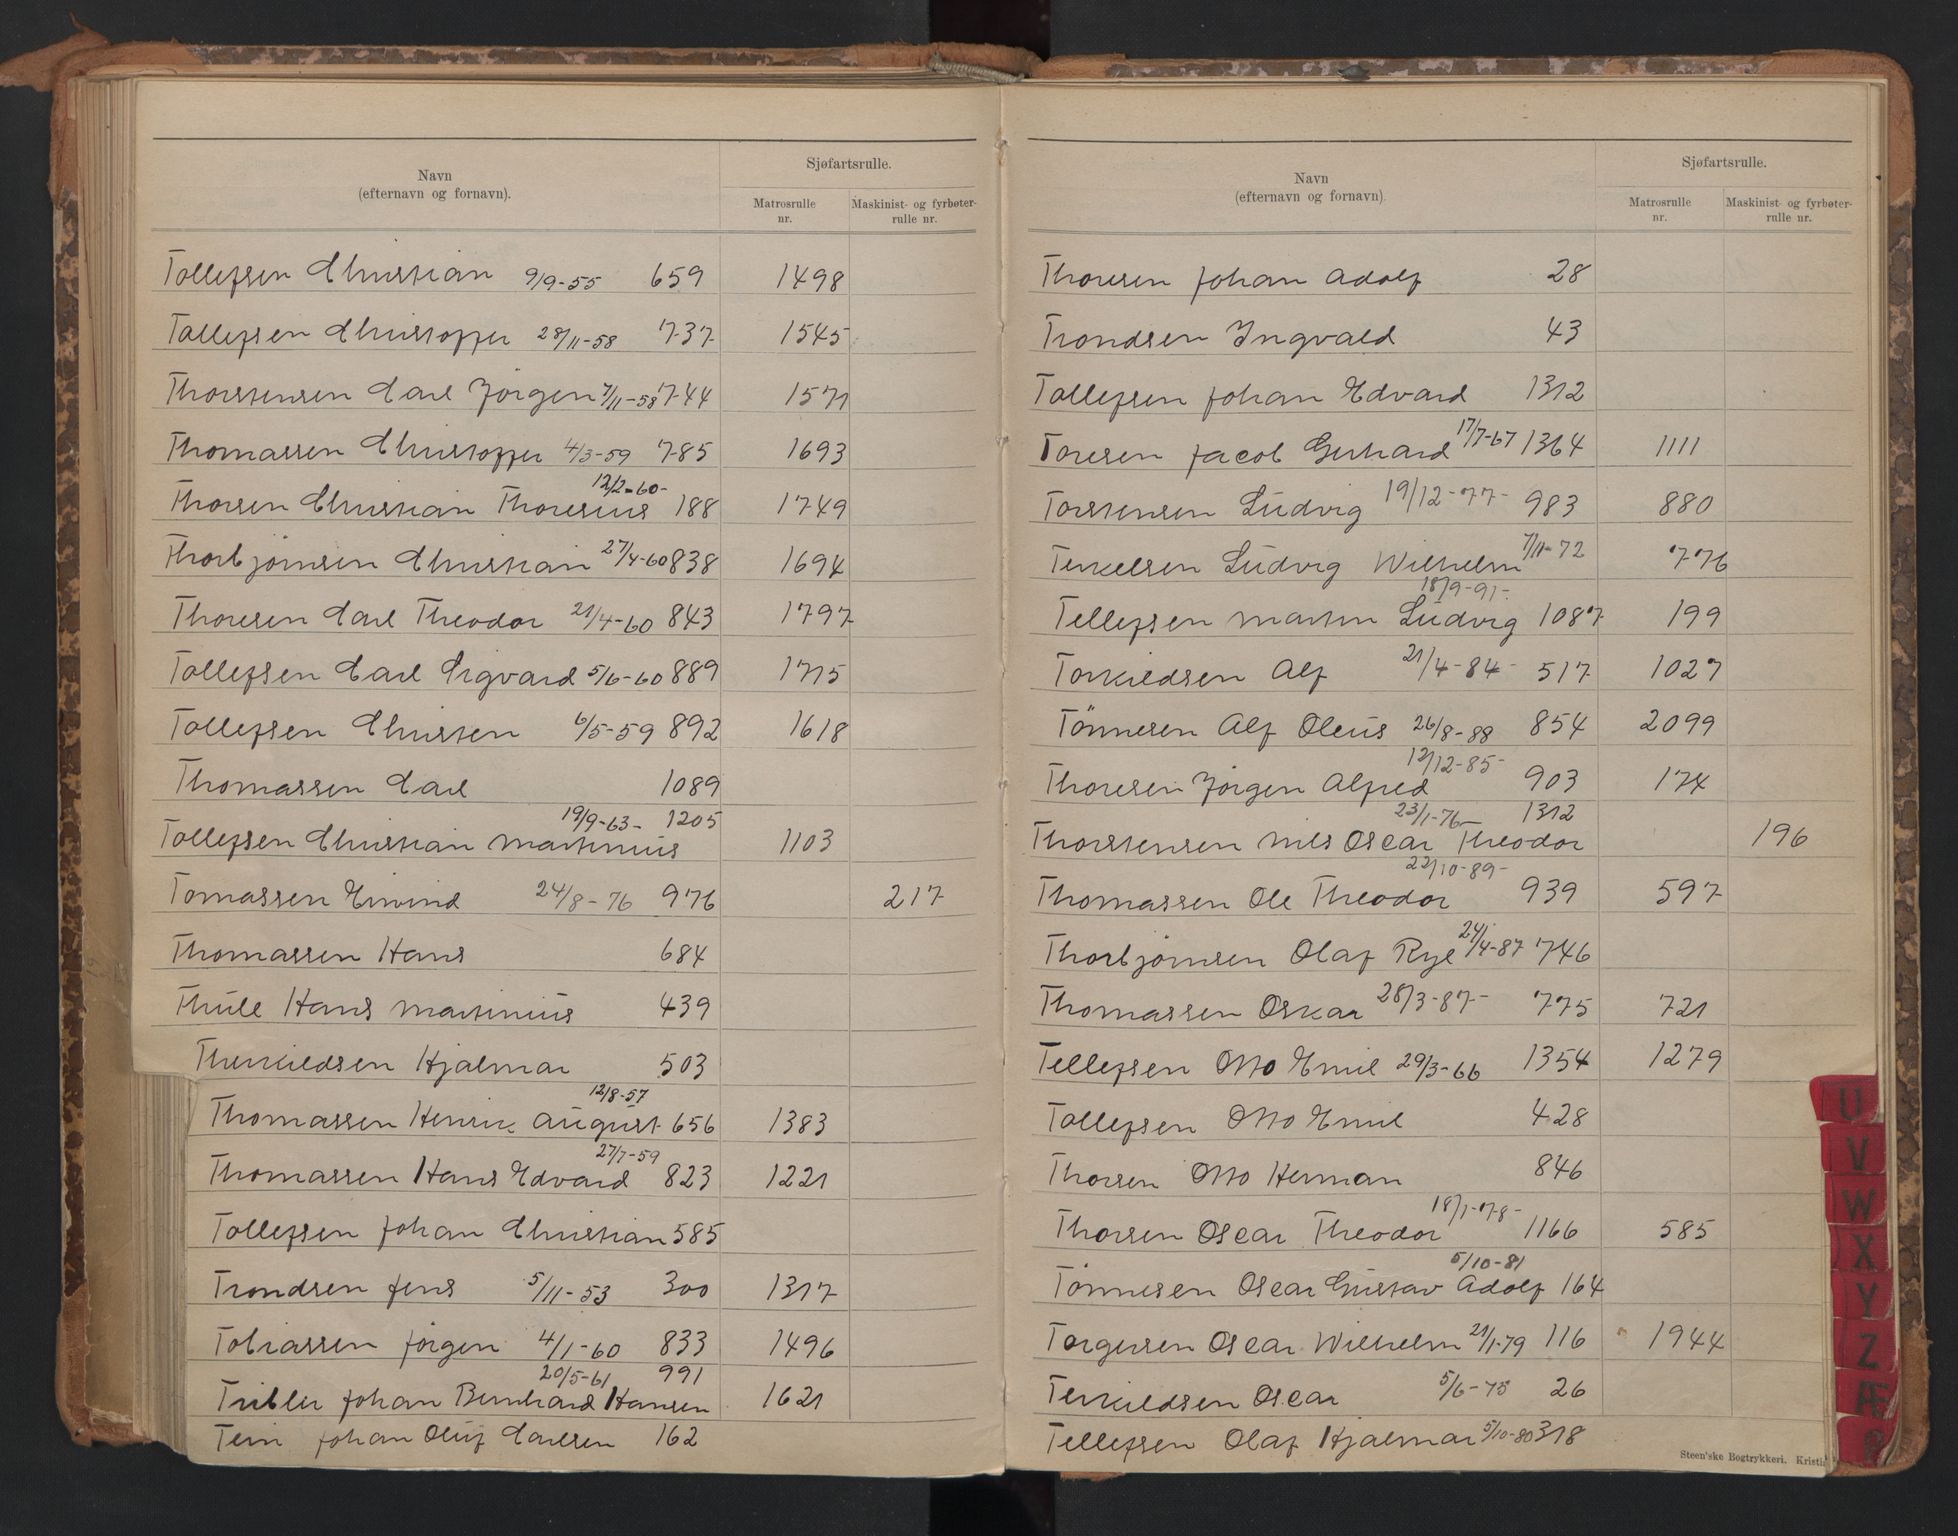 Navn
(efternavn og fornavn).
Sjøfartsrulle.
Matrosrulle nr.
Maskinist- og fyrbøter- rulle nr.
Tollefsen Christian 9/9-55 659 1498
Tollefsen Christoffer 28/11-58 737 1545
Thorstensen Carl Jörgen 7/11-58 744 1571
Thomassen Christoffer 4/3-59 785 1693
Thorsen Christian Thoresius 12/2-60- 188 1749
Thorbjörnsen Christian 27/4-60 838 1694
Thoresen Carl Theodor 21/4-60 843 1797
Tollefsen Carl Sigvard 5/6-60 889 1715
Tollefsen Christen 6/5-59 892 1618
Thomassen Carl 1089
Tollefsen Christian Martinius 19/9-63- 1205 1103
Tomassen Eivind 24/8-76 976 217
Thomassen Hans 684
Thule Hans Martinius 439
Therkildsen Hjalmar 503
Thomassen Henrik August 12/8-57 656 1383
Thomassen Hans Edvard 27/7-59 823 1221
Tollefsen Johan Christian 585
Trondsen Jens 5/11-53 300 1317
Tobiassen Jörgen 4/1-60 833 1496
Tribler Johan Bernhard Hansen 20/5-61 991 1621
Johan Oluf Carlsen 162
Navn
(efternavn og fornavn).
Sjøfartsrulle.
Matrosrulle nr.
Maskinist- og fyrbøter- rulle nr.
Thoresen Johan Adolf 28
Trondsen Ingvald 43
Tollefsen Johan Edvard 1312
Toresen Jacob Gerhard 17/7-67 1364 1111
Torstensen Ludvig 19/12-77- 983 880
Terkelsen Ludvig Wilhelm 7/11-72 776
Tellefsen Martin Ludvig 18/9-91- 1087 199
Torkildsen Alf 21/4-84- 517 1027
Tönnesen Alf Oleus 26/8-88 854 2099
Thoresen Jörgen Alfred 12/12-85- 903 174
Thorstensen Nils Oscar Theodor 23/1-76- 1312 196
Thomassen Ole Theodor 22/10-89- 939 597
Thorbjörnsen Olaf Rye 24/4-87 746
Thomassen Oskar 28/3-87- 775 721
Tellefsen Otto Emil 29/3-66 1354 1279
Tollefsen Otto Emil 428
Thorsen Otto Herman 846
Thorsen Oscar Theodor 18/1-78- 1166 585
Tönnesen Oscar Gustav Adolf 5/10-81 164
Torgersen Oscar Wilhelm 21/1-79 116 1944
Terkildsen Oscar 5/6-75 26
Tellefsen Olaf Hjalmar 5/10-80 318
Steen'ske Bogtrykkeri. Kristi
U
V
W
X
Y
Z
Æ